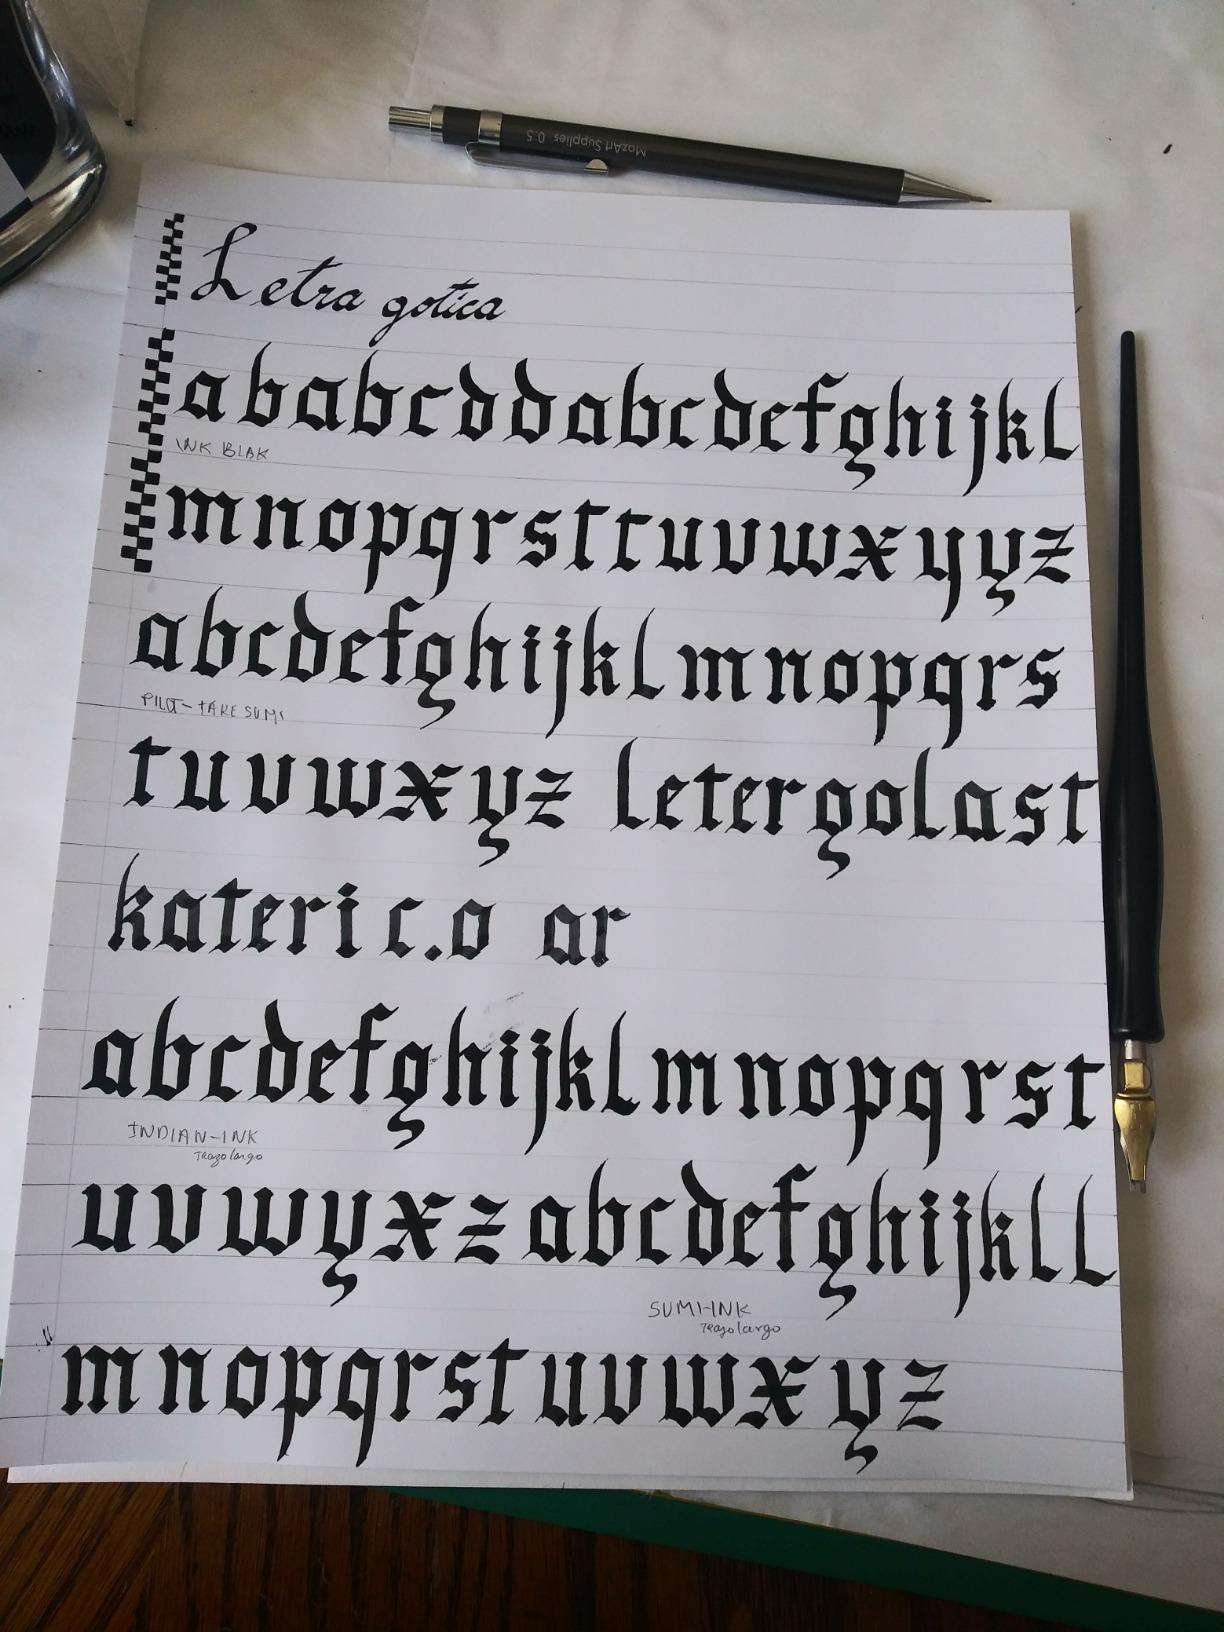 MozArt Supplies 0.5
Letra gotica
ababcddabcdefghijkl
INK BLAK
mnopqrsttuvwxyyz
abcdefghijklmnopqrs
PILOT-TAKE SUMI
tuvwxyz letergolast
kateri c.o ar
abcdefghijklmnopqrst
INDIAN-INK
Trazo largo
uvwyxz abcdefghijkll
SUMI-INK
Trazo largo
mnopqrstuvwxyz